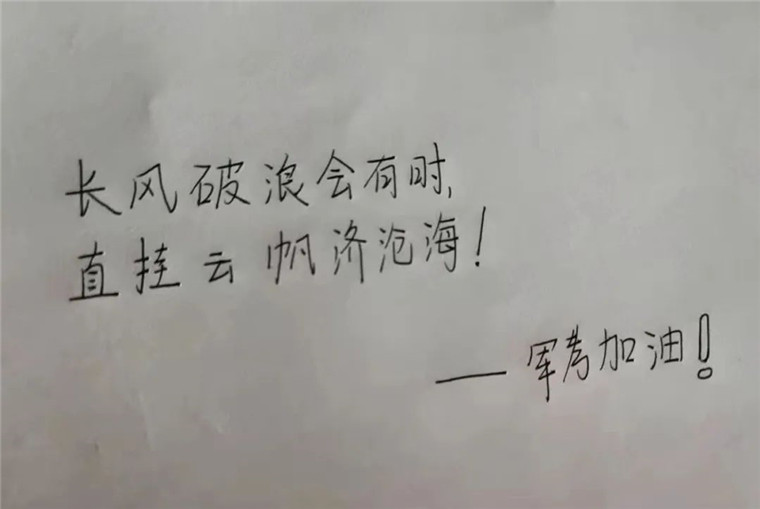 长风破浪会有时,
直挂云帆济沧海!
——军考加油!